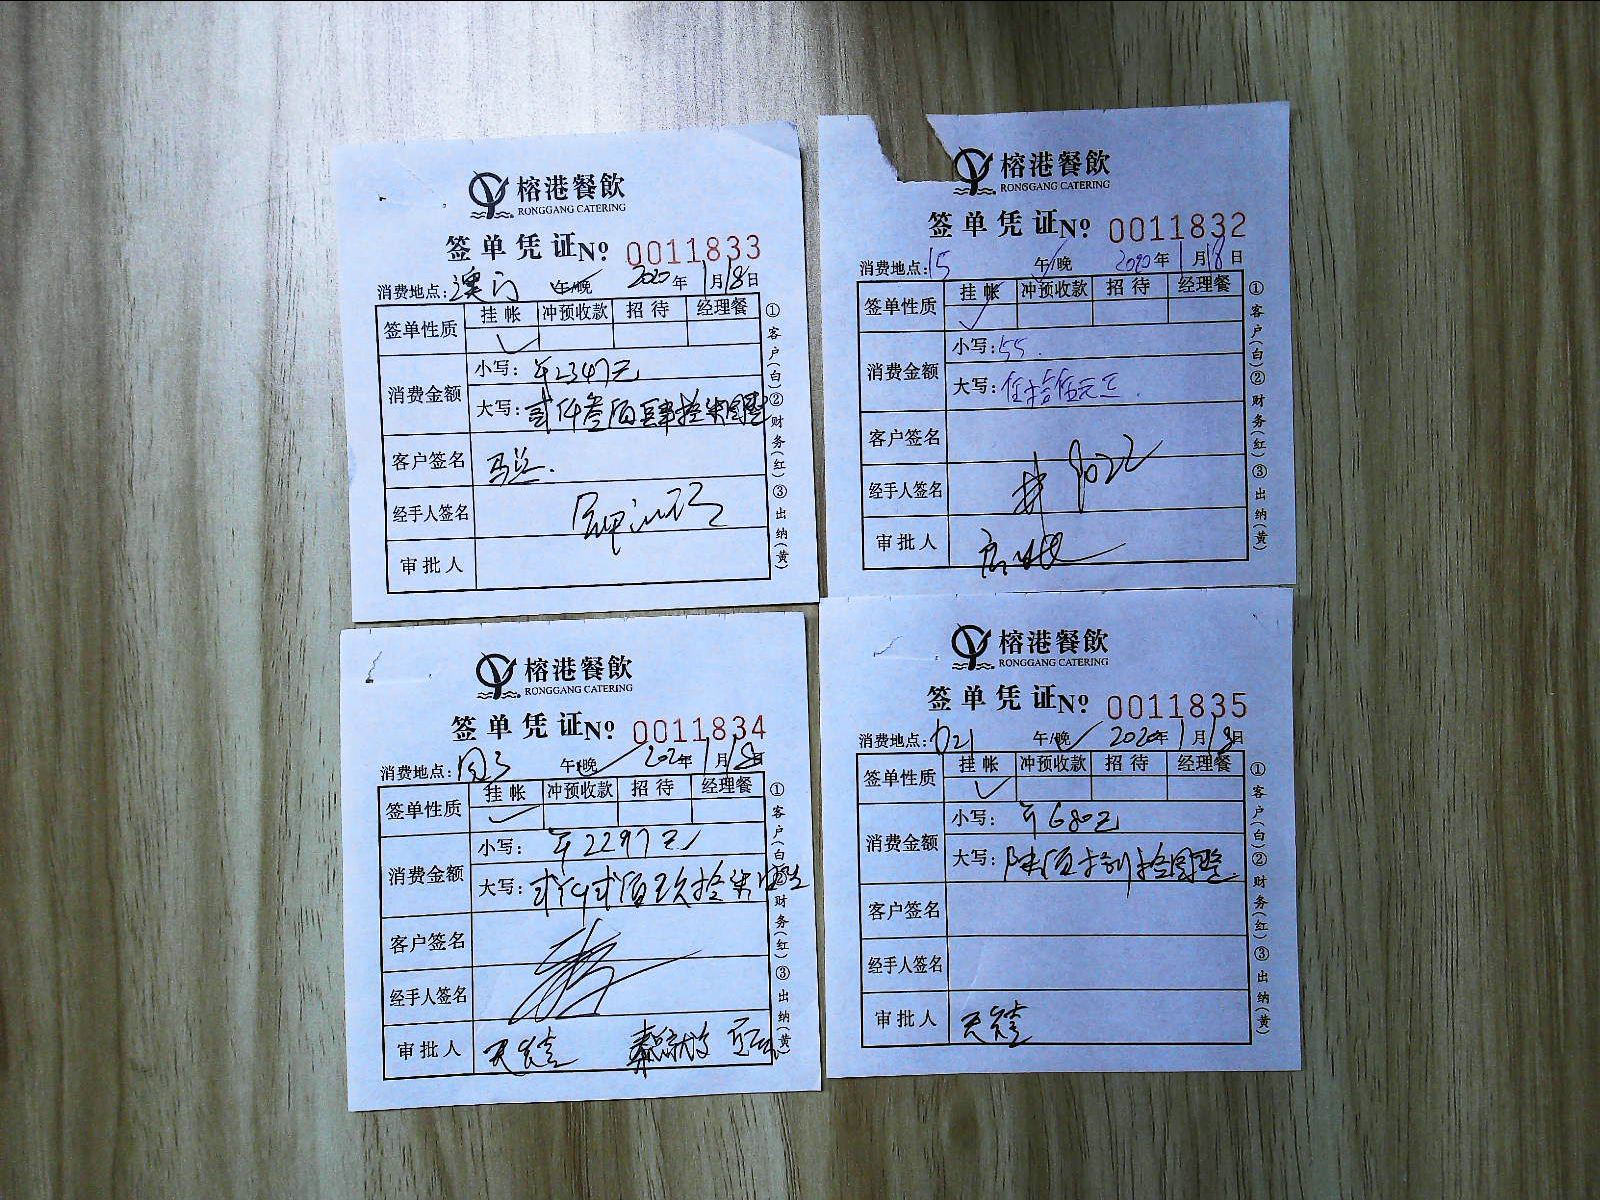 榕港餐飲
RONGGANG CATERING
签单凭证 № 0011833
消费地点: 澳门 午/晚 2020年 1月18日
签单性质 挂帐 冲预收款 招待 经理餐
✓
消费金额 小写: ¥2347元
大写: 贰仟叁佰肆拾柒圆整
客户签名
经手人签名
审批人
①客户(白)②财务(红)③出纳(黄)
榕港餐飲
RONGGANG CATERING
签单凭证 № 0011832
消费地点: 15 午/晚 2020年 1月18日
签单性质 挂帐 冲预收款 招待 经理餐
✓
消费金额 小写: 55.
大写: 伍拾伍元正.
客户签名
经手人签名
审批人
①客户(白)②财务(红)③出纳(黄)
榕港餐飲
RONGGANG CATERING
签单凭证 № 0011834
消费地点: 午/晚 年 1月18日
签单性质 挂帐 冲预收款 招待 经理餐
✓
消费金额 小写: ¥2297元
大写: 贰仟贰佰玖拾柒
客户签名
经手人签名
审批人
①客户(白)②财务(红)③出纳(黄)
榕港餐飲
RONGGANG CATERING
签单凭证 № 0011835
消费地点: 021 午/晚 2020年 1月18日
签单性质 挂帐 冲预收款 招待 经理餐
✓
消费金额 小写: ¥680元
大写: 陆佰捌拾圆整
客户签名
经手人签名
审批人
①客户(白)②财务(红)③出纳(黄)